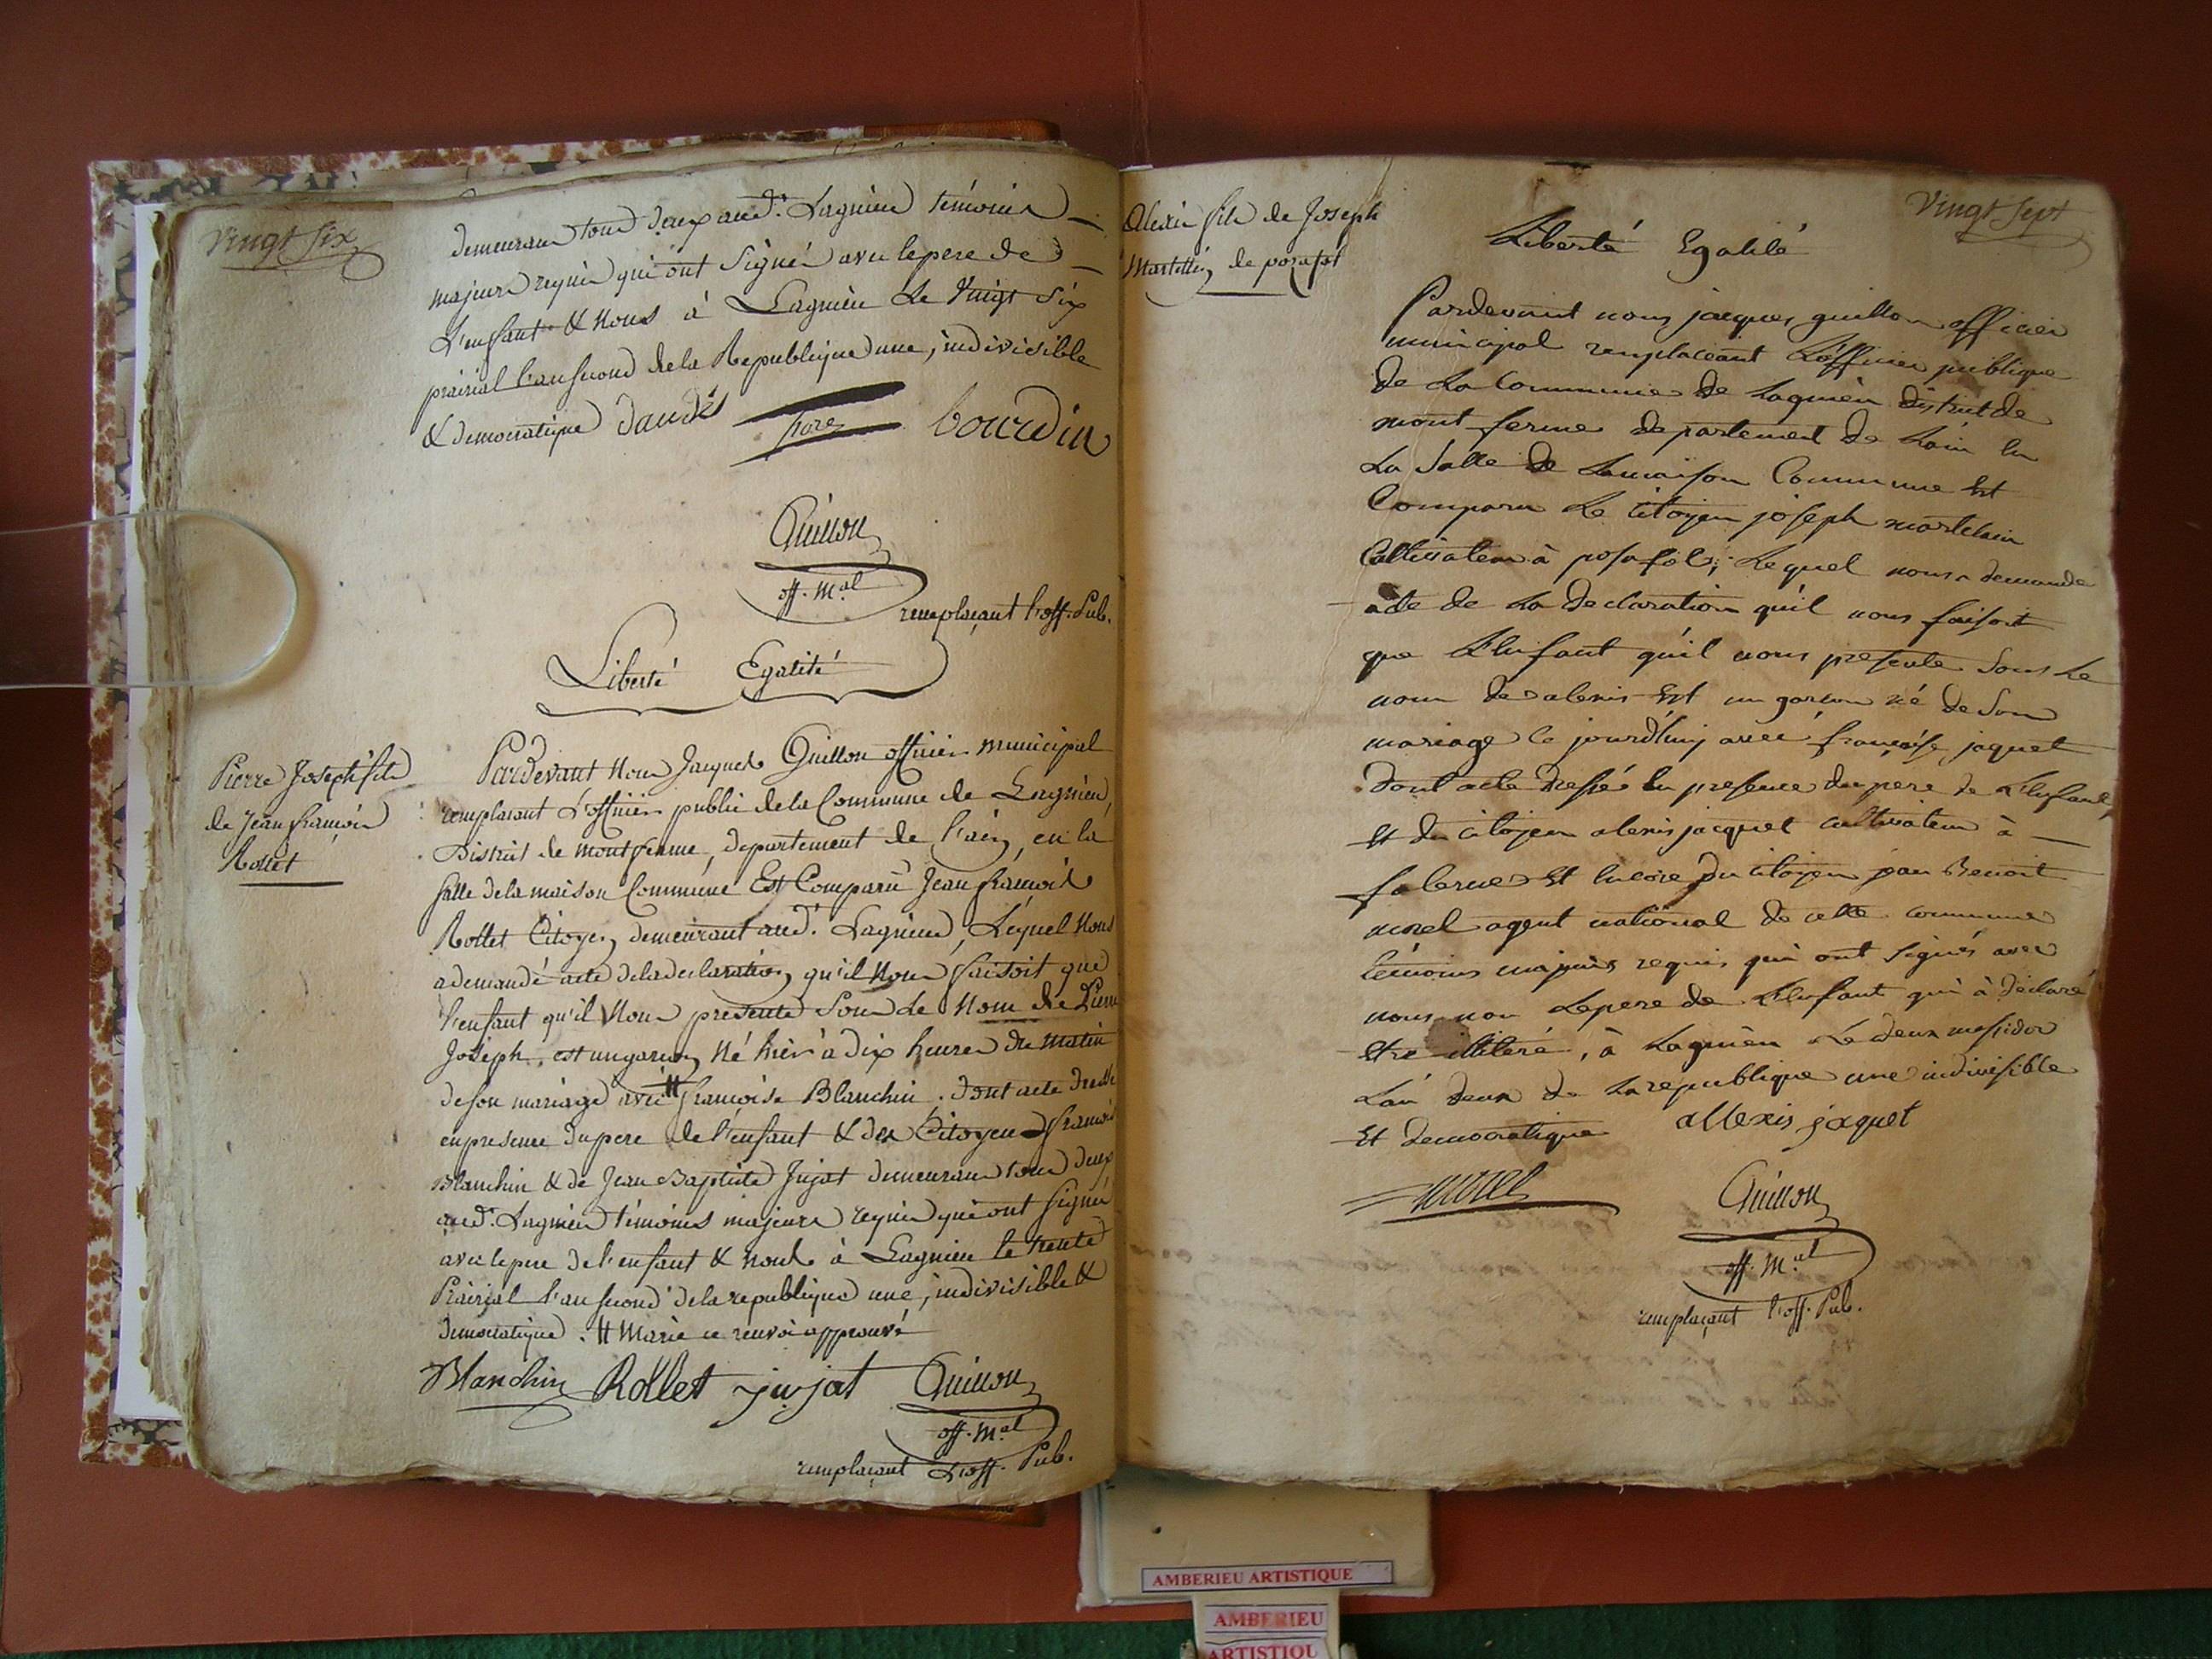 Vingt Six
demeurans tous deux aud. Lagnieu témoins
majeurs requis qui ont Signés avec le pere de
L'enfant & Nous à Lagnieu Le Vingt Six
prairial l'an second de la Republique une, indivisible
& democratique dandes fore bourdin
Guillon
off. M.al
remplaçant l'off. Pub.
Liberté Egalité
Pierre Joseph fils
de Jean françois
Rollet
Pardevant Nous Jacques Guillon officier municipal
remplacant L'officier public de la Commune de Lagnieu,
District de montferme, departement de l'ain, en la
Salle de la maison Commune Est Comparu Jean françois
Rollet Citoyen demeurant aud. Lagnieu, Lequel Nous
a demandé acte de la declaration qu'il Nous faisoit que
l'enfant qu'il Nous presente Sous Le Nom de Pierre
Joseph, est un garçon Né hier à dix heures du matin
de son mariage avec # françoise Blanchin. Dont acte dressé
en presence du pere de l'enfant & des Citoyens françois
Blanchin & de Jean Baptiste Jujat demeurans tous deux
aud. Lagnieu témoins majeurs requis qui ont Signés
avec le pere de l'enfant & Nous à Lagnieu le trente
Prairial l'an second de la republique une, indivisible &
democratique. # Marie ce renvoi approuvé
Blanchin Rollet jujat Guillon
off. M.al
remplaçant L'off. Pub.
Vingt Sept
Alexis fils de Joseph
de posafol
Liberté Egalité
Pardevant nous jacques guillon officier
municipal remplaceant L'officier publique
de La Commune de Lagnieu district de
mont ferme departement de Lain En
La Salle de Lamaison Commune Est
Comparu Le Citoyen joseph martelain
Cultivateur à posafol, Lequel nous a demandé
acte de La declaration qu'il nous faisoit
que L'Enfant qu'il nous presente Sous Le
nom de alexis Est un garson né de Son
mariage ce jourd'huy avec françoise jaquet
dont acte dressé En presence du pere de L'Enfant
Et du citoyen alexis jacquet cultivateur à
Et Encore du citoyen jean Benoit
morel agent national de cette commune
témoins majeurs requis qui ont signés avec
nous non Lepere de L'Enfant qui à déclaré
Etre illiteré, à Lagnieu Le deux messidor
L'an deux de La republique une indivisible
Et democratique allexis jaquet
morel Guillon
off. M.al
remplaçant l'off. Pub.
AMBERIEU ARTISTIQUE
AMBERIEU
ARTISTIQU